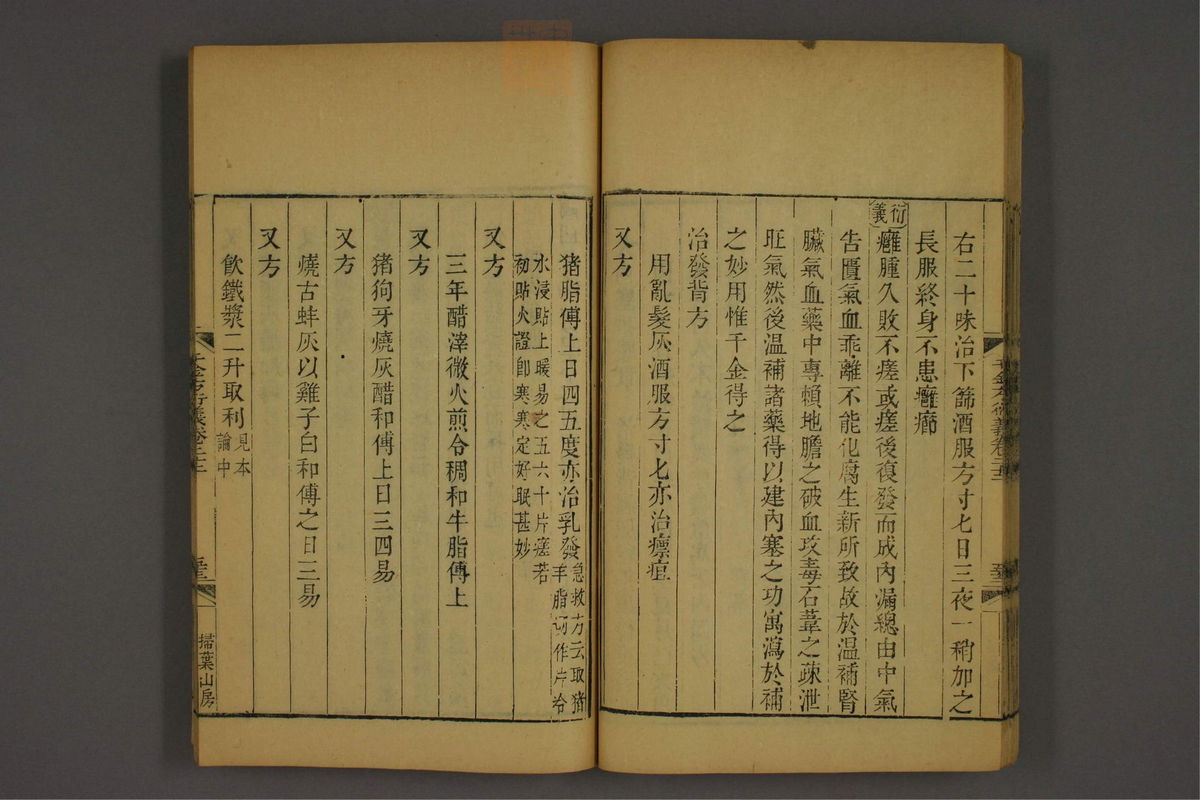 右二十味治下篩酒服方寸匕日三夜一稍加之
長服終身不患癰癤
衍義
癰腫久敗不瘥或瘥後復發而成內漏總由中氣
告匱氣血乖離不能化腐生新所致故於溫補腎
臟氣血藥中專賴地膽之破血攻毒石葦之疎泄
旺氣然後溫補諸藥得以建內塞之功寓瀉於補
之妙用惟千金得之
治發背方
用亂髮灰酒服方寸匕亦治瘭疽
又方
豬脂傅上日四五度亦治乳發急救方云取豬
羊脂切作片冷
水浸貼上暖易之五六十片瘥若
初貼火證即寒寒定好眠甚妙
又方
三年醋滓微火煎令稠和牛脂傅上
又方
豬狗牙燒灰醋和傅上日三四易
又方
燒古蚌灰以雞子白和傅之日三易
又方
飲鐵漿二升取利見本
論中
千金方衍義卷二十二
掃葉山房